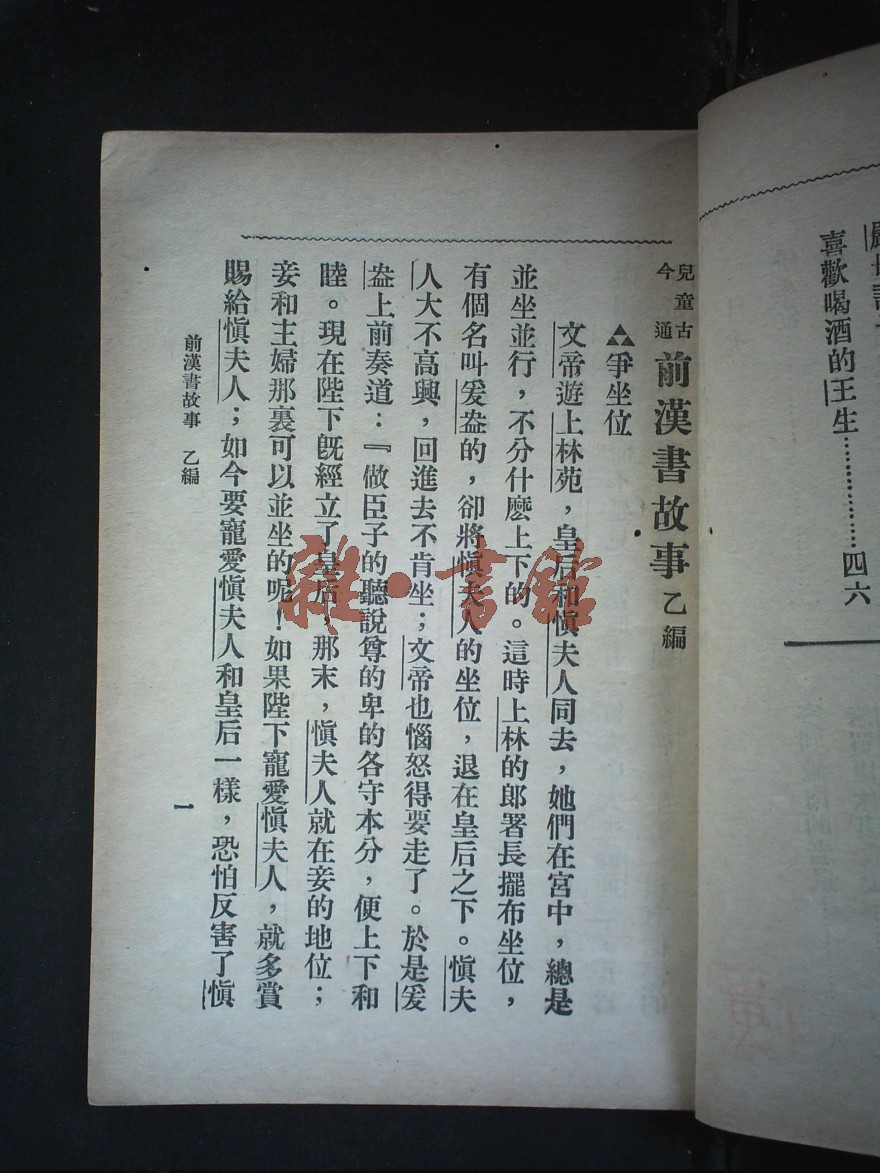 喜歡喝酒的王生………………四六
兒童古今通
前漢書故事 乙編
爭坐位
文帝遊上林苑，皇后和愼夫人同去，她們在宮中，總是
並坐並行，不分什麽上下的。這時上林的郎署長擺布坐位，
有個名叫爰盎的，卻將愼夫人的坐位，退在皇后之下。愼夫
人大不高興，回進去不肯坐；文帝也惱怒得要走了。於是爰
盎上前奏道：『做臣子的聽說尊的卑的各守本分，便上下和
睦。現在陛下旣經立了皇后，那末，愼夫人就在妾的地位；
妾和主婦那裏可以並坐的呢！如果陛下寵愛愼夫人，就多賞
賜給愼夫人；如今要寵愛愼夫人和皇后一樣，恐怕反害了愼
前漢書故事 乙編
一
雜·書館